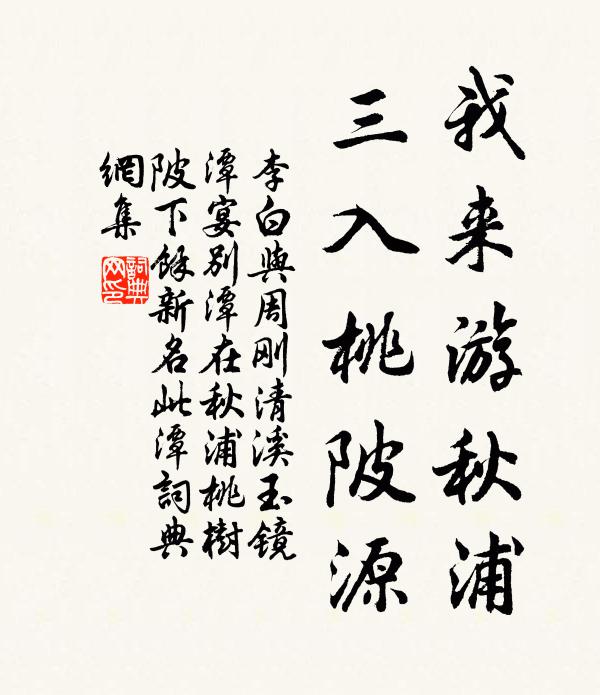 我来游秋浦
三入桃陂源
李白與周刚清溪玉镜
潭宴别潭在秋浦桃樹
陂下餘新名此潭詞典
網集
詞典
网印